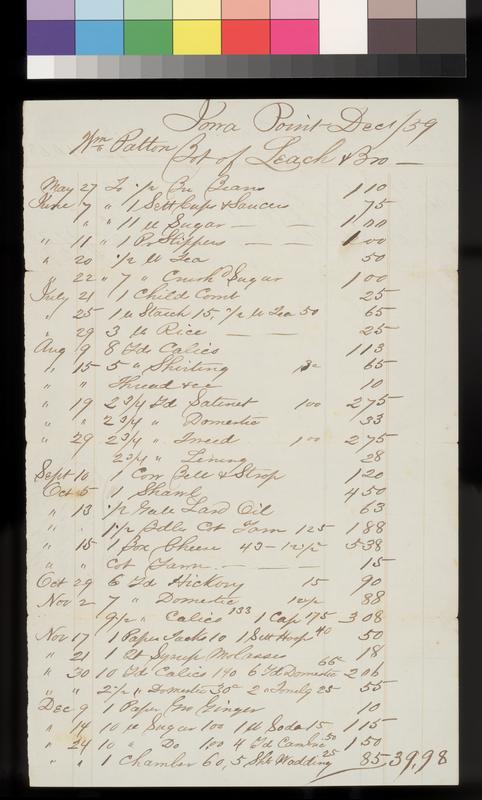 Iowa Point Dec 1/59
Wm Patton Bot of Leach & Bro
May 27 To 1/2 Jeans 1 10
June 7 " 1 Sett Cups & Saucers 75
" " 11 lb Sugar 1 00
" 11 " 1 Pr Slippers 1 00
" 20 1/2 lb Tea 50
" 22 " 7 " Crushd Sugar 1 00
July 21 1 Child Comb 25
" 25 1 lb Starch 15, 1/2 lb Tea 50 65
" 29 3 lb Rice 25
Aug 9 8 Yds Calico 1 13
" 15 5 " Shirting 65
" " Thread &c 10
" 19 2 3/4 Yd Satinet 100 2 75
" " 2 3/4 " Domestic 33
" 29 2 3/4 " Tweed 100 2 75
2 3/4 " Lining 28
Sept 10 1 Cow Bell & Strap 1 20
Oct 5 1 Shawl 4 50
" 13 1/2 Gall Lard Oil 63
" " 1 1/2 Bdls Cot Yarn 125 1 88
" 15 1 Box Cheese 43-12 1/2 5 38
" " Cot Yarn 15
Oct 29 6 Yd Hickory 15 90
Nov 2 7 " Domestic 12 1/2 88
9 1/2 " Calico 133 1 Cap 175 3 08
Nov 17 1 Paper Tacks 10 1 Sett Hoop 40 50
" 21 1 Qt Syrup Molasses 18
" 30 10 Yd Calico 140 6 Yd Domestic 66 2 06
" " 2 1/2 " Domestic 30 2 " 25 55
Dec 9 1 Paper Ginger 10
" 14 10 lb Sugar 100 1 lb Soda 15 1 15
" 24 10 " Do 100 4 Yd Cambric 50 1 50
" " 1 Chamber 60, 5 Shts Wadding 25 85 39,98